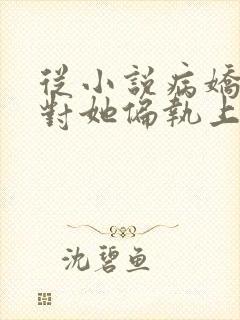 從小說病嬌
對她偏執上
沈碧魚